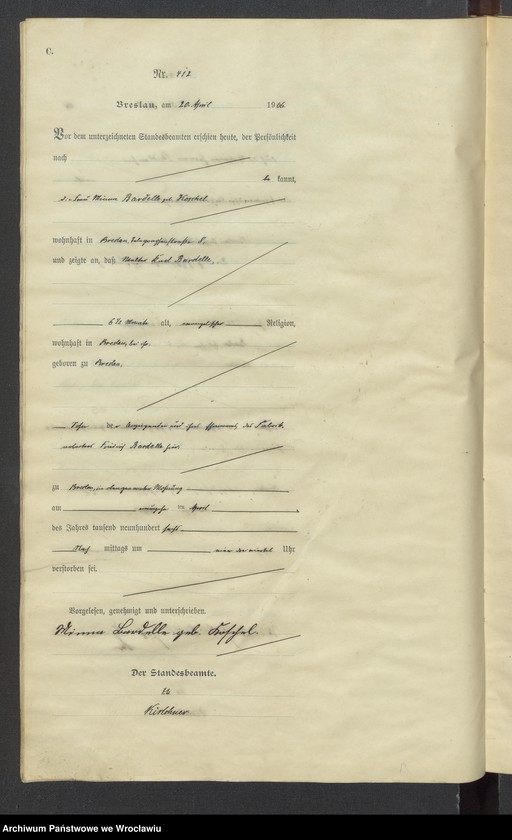 C.
Nr. 912
Breslau, am 20 April 1906
Vor dem unterzeichneten Standesbeamten erschien heute, der Persönlichkeit
nach be kannt,
die Frau Minna Bardelle geb. Koschel
wohnhaft in Breslau, 8,
und zeigte an, daß Walter Karl Bardelle,
6 1/2 Monate alt, evangelischer Religion,
wohnhaft in Breslau, bei ihr,
geboren zu Breslau,
Sohn der Anzeigenden und ihres Ehemannes, des Fabrik
arbeiters Friedrich Bardelle hier,
zu Breslau, in Wohnung
am im April
des Jahres tausend neunhundert sechs
Nach mittags um ein viertel Uhr
verstorben sei.
Vorgelesen, genehmigt und unterschrieben.
Minna Bardelle geb. Koschel.
Der Standesbeamte.
Kirschner
Archiwum Państwowe we Wrocławiu